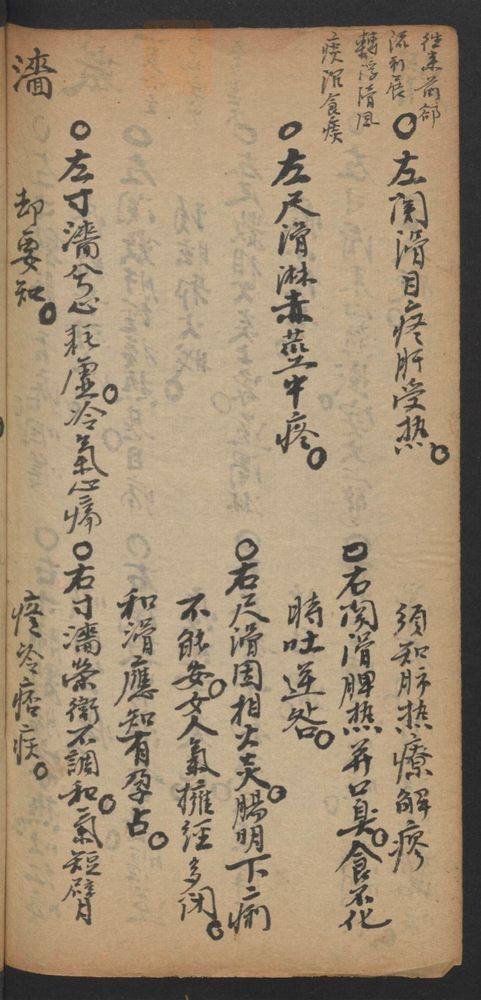 往来前郤
流利展
轉浮滑風
痰沉食痰
○左関滑目疼肝受热○
須知肺热療解瘳
○右関滑脾热并口臭○食不化
時吐逆咎○
○左尺滑淋赤莖中疼○
○右尺滑因相火炎○腸明下痢
不能安○女人氣擁經多闭○
和滑應知有孕占○
濇
○左寸濇兮心耗虚○冷氣心痛
却要知○
○右寸濇榮衛不調和○氣短臂
疼冷痞疾○